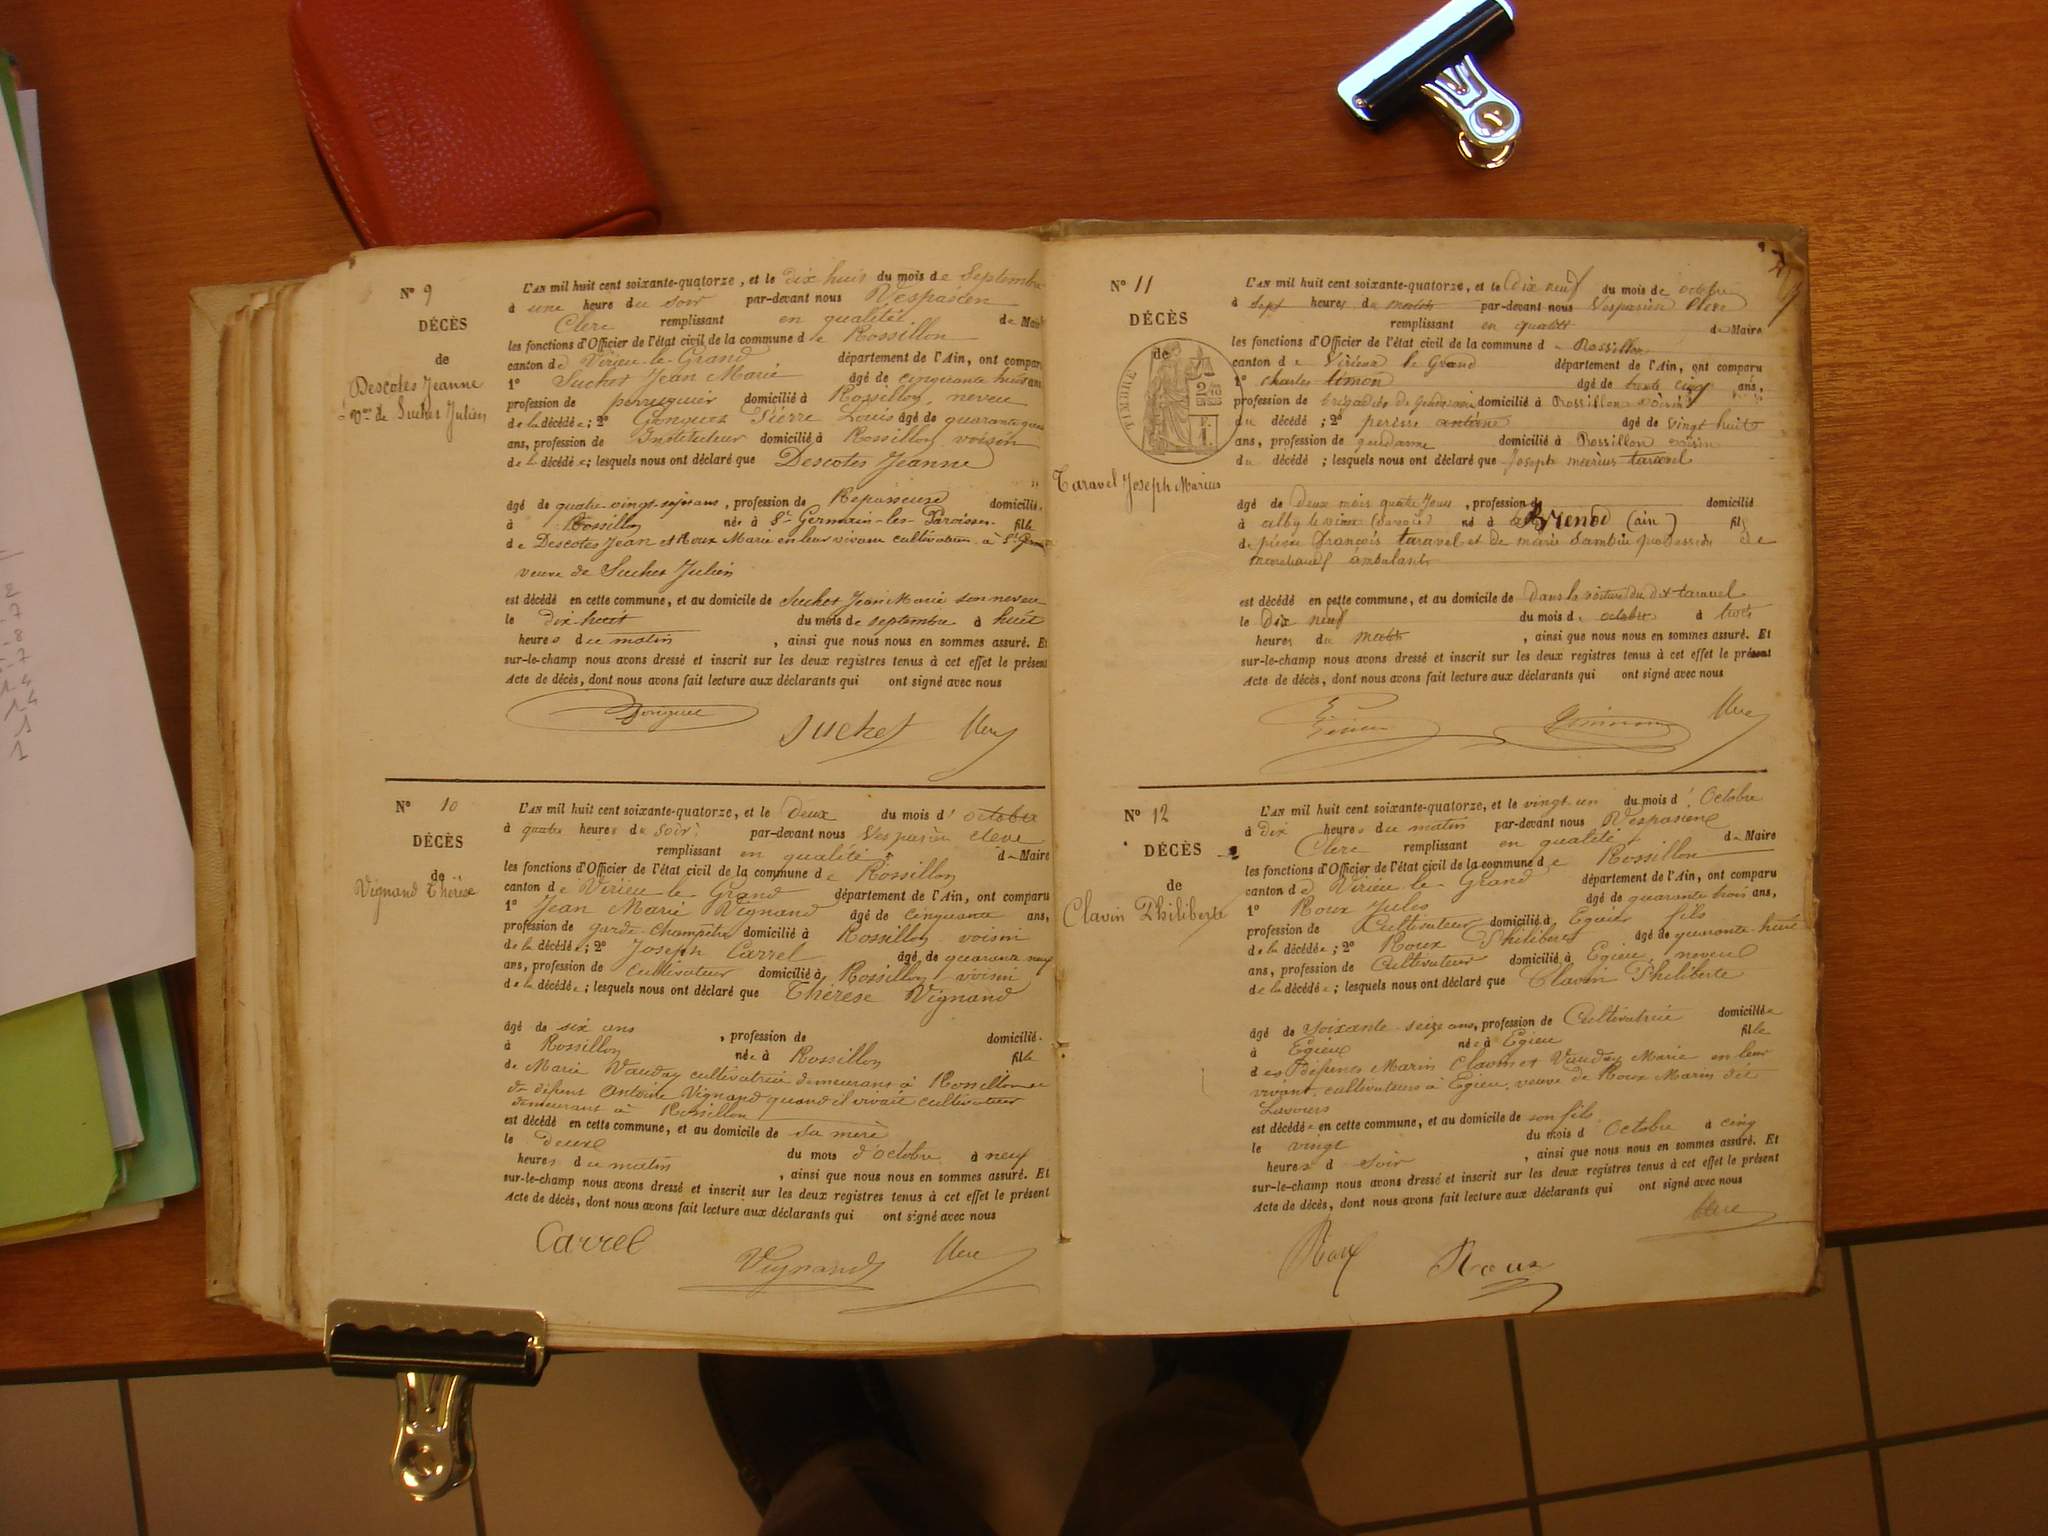 N° 9
DÉCÈS
de
Descotes Jeanne
v.ve de Suchet Julien
L'AN mil huit cent soixante-quatorze, et le dix huit du mois de Septembre
à une heure du soir par-devant nous Vespasien
Clerc remplissant en qualité de Maire
les fonctions d'Officier de l'état civil de la commune de Rossillon
canton de Virieu-le-Grand département de l'Ain, ont comparu
1° Suchet Jean Marie âgé de cinquante huit ans
profession de perruquier domicilié à Rossillon, neveu
de la décédée; 2° Gonguet Pierre Louis âgé de quarante
ans, profession de Instituteur domicilié à Rossillon voisin
de la décédée; lesquels nous ont déclaré que Descotes Jeanne
âgé de quatre vingt sept ans, profession de Repasseuse domicilié
à Rossillon née à St Germain-les-Paroisses fille
de Descotes Jean et Roux Marie en leur vivant cultivateurs à St
veuve de Suchet Julien
est décédé en cette commune, et au domicile de Suchet Jean Marie son neveu
le dix-huit du mois de septembre à huit
heures du matin, ainsi que nous nous en sommes assuré. Et
sur-le-champ nous avons dressé et inscrit sur les deux registres tenus à cet effet le présent
Acte de décès, dont nous avons fait lecture aux déclarants qui ont signé avec nous
Gonguet Suchet Clerc
N° 10
DÉCÈS
de
Vignand Thérèse
L'AN mil huit cent soixante-quatorze, et le Deux du mois d'octobre
à quatre heures du soir par-devant nous Vespasien clerc
remplissant en qualité de Maire
les fonctions d'Officier de l'état civil de la commune de Rossillon
canton de Virieu-le-Grand département de l'Ain, ont comparu
1° Jean Marie Vignand âgé de cinquante ans,
profession de garde-champêtre domicilié à Rossillon voisin
de la décédée; 2° Joseph Carrel âgé de quarante neuf
ans, profession de cultivateur domicilié à Rossillon voisin
de la décédée; lesquels nous ont déclaré que Thérèse Vignand
âgé de six ans, profession de domicilié
à Rossillon née à Rossillon fille
de Marie Vauday cultivatrice demeurant à Rossillon et
de défunt Antoine Vignand quand il vivait cultivateur
demeurant à Rossillon
est décédé en cette commune, et au domicile de sa mère
le deux du mois d'octobre à neuf
heures du matin, ainsi que nous nous en sommes assuré. Et
sur-le-champ nous avons dressé et inscrit sur les deux registres tenus à cet effet le présent
Acte de décès, dont nous avons fait lecture aux déclarants qui ont signé avec nous
Carrel Vignand Clerc
N° 11
DÉCÈS
de
TIMBRE
Taravel Joseph Marius
L'AN mil huit cent soixante-quatorze, et le dix neuf du mois de octobre
à sept heures du matin par-devant nous Vespasien Clerc
remplissant en qualité de Maire
les fonctions d'Officier de l'état civil de la commune de Rossillon
canton de Virieux le Grand département de l'Ain, ont comparu
1° charles limon âgé de trente cinq ans,
profession de brigadier de gendarmerie domicilié à Rossillon voisin
du décédé; 2° perisse antoine âgé de vingt huit
ans, profession de gendarme domicilié à Rossillon voisin
du décédé; lesquels nous ont déclaré que Joseph marius taravel
âgé de Deux mois quatre jours, profession de domicilié
à alby le vieux (Savoie) né à Brénod (ain) fils
de pierre françois taravel et de marie profession de
marchands ambulants
est décédé en cette commune, et au domicile de dans la voiture du dit taravel
le Dix neuf du mois de octobre à trois
heures du matin, ainsi que nous nous en sommes assuré. Et
sur-le-champ nous avons dressé et inscrit sur les deux registres tenus à cet effet le présent
Acte de décès, dont nous avons fait lecture aux déclarants qui ont signé avec nous
Clerc
N° 12
DÉCÈS
de
Clavin Philiberte
L'AN mil huit cent soixante-quatorze, et le vingt-un du mois d'Octobre
à dix heures du matin par-devant nous Vespasien
Clerc remplissant en qualité de Maire
les fonctions d'Officier de l'état civil de la commune de Rossillon
canton de Virieu-le-Grand département de l'Ain, ont comparu
1° Roux Jules âgé de quarante trois ans,
profession de Cultivateur domicilié à Egieu fils
de la décédée; 2° Roux Philibert âgé de quarante huit
ans, profession de Cultivateur domicilié à Egieu, neveu
de la décédée; lesquels nous ont déclaré que Clavin Philiberte
âgé de soixante-seize ans, profession de Cultivatrice domiciliée
à Egieu née à Egieu fille
des défunts Marin Clavin et Vauday Marie en leur
vivant cultivateurs à Egieu, veuve de Roux Marin dit
Lavours
est décédée en cette commune, et au domicile de son fils
le vingt du mois d'Octobre à cinq
heures d soir, ainsi que nous nous en sommes assuré. Et
sur-le-champ nous avons dressé et inscrit sur les deux registres tenus à cet effet le présent
Acte de décès, dont nous avons fait lecture aux déclarants qui ont signé avec nous
Clerc
Roux Roux